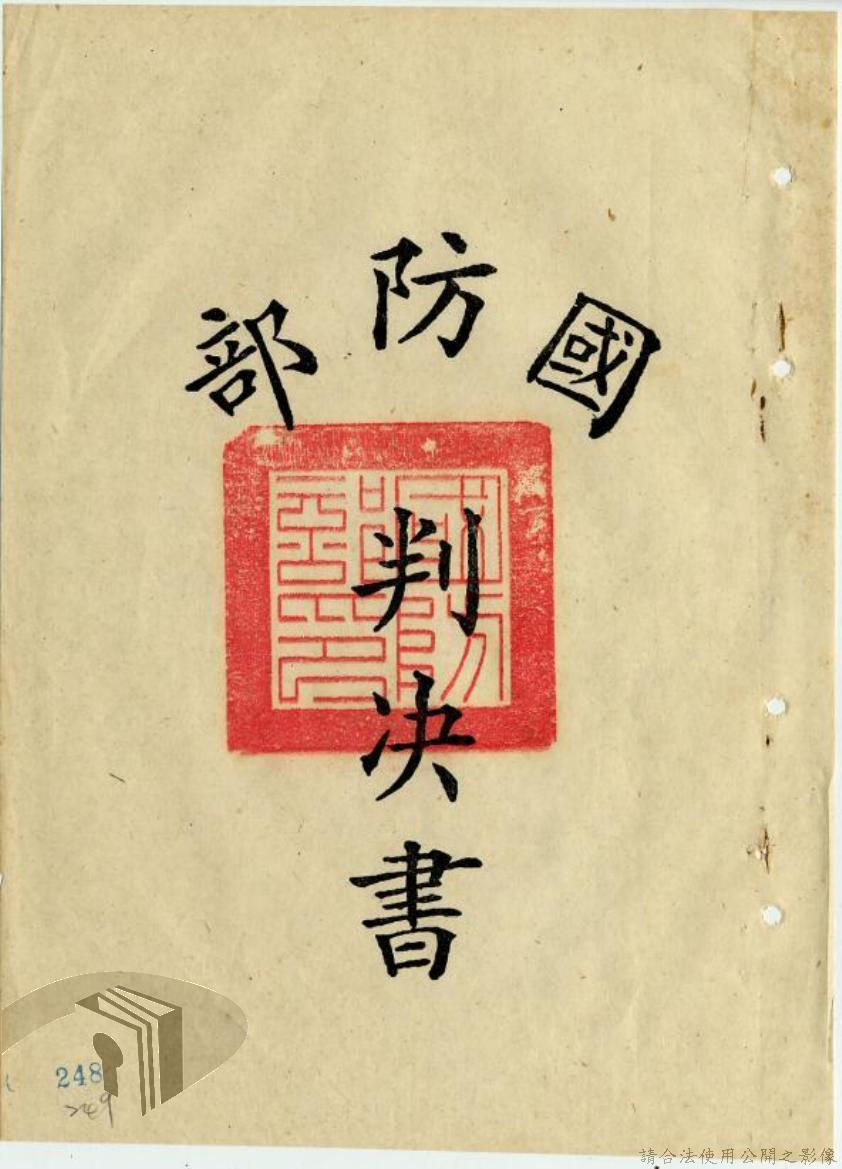 國防部
判決書
248
249
請合法使用公開之影像